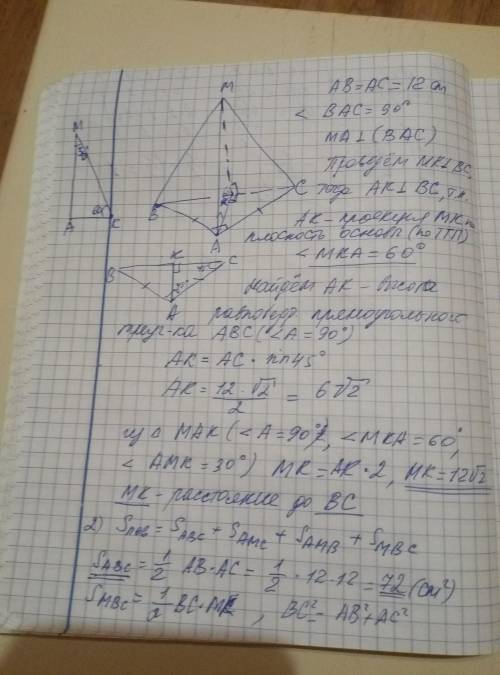 M
AB = AC = 12 см
< BAC = 90°
MA ⊥ (BAC)
Проведём MK ⊥ BC,
тогда AK ⊥ BC, т.к.
AK - проекция MK на
плоскость основы (по ТТП)
< MKA = 60°
B
C
A
K
60°
A
K
B
C
A
Найдём AK - высота
равнобедр. прямоугольного
треуг-ка ABC (<A = 90°)
AK = AC · sin 45°
AK = 12 · √2 / 2 = 6√2
Из Δ MAK (<A = 90°, <MKA = 60°,
< AMK = 30°) MK = AK · 2, MK = 12√2
MK - расстояние до BC
2) Sпов = S ABC + S AMC + S AMB + S MBC
S ABC = 1/2 AB · AC = 1/2 · 12 · 12 = 72 (см²)
S MBC = 1/2 BC · MK, BC² = AB² + AC²